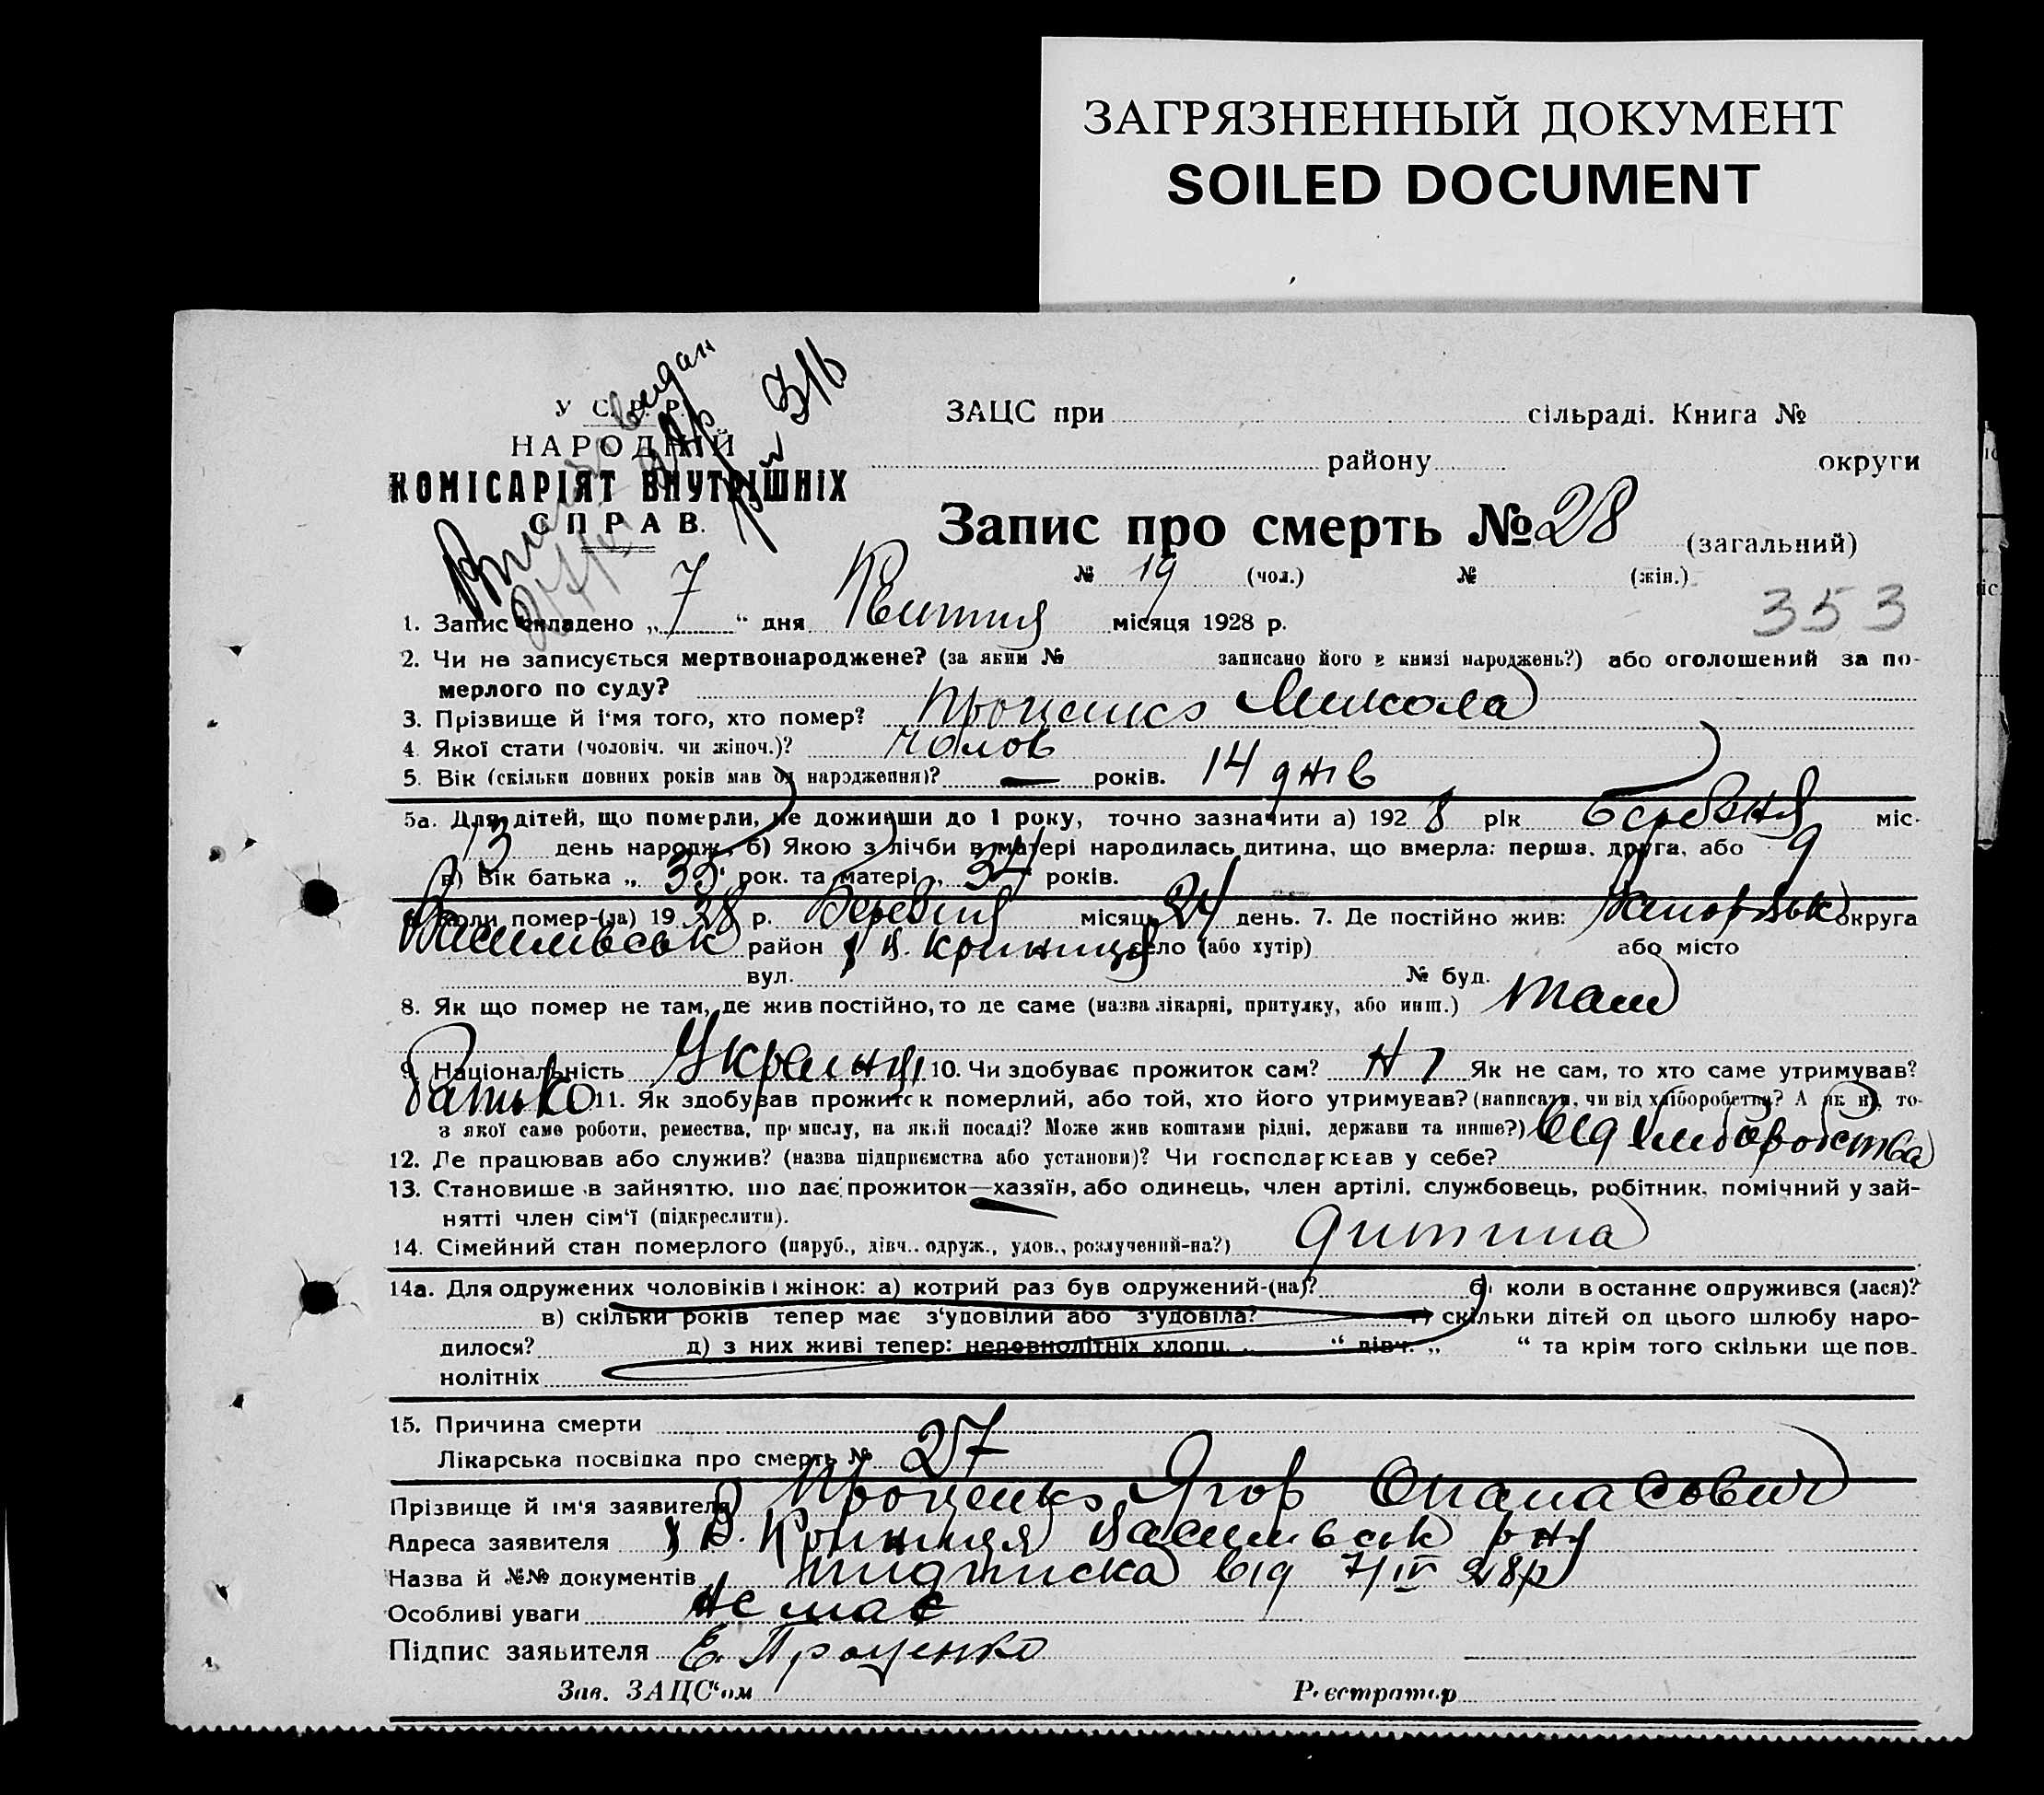 ЗАГРЯЗНЕННЫЙ ДОКУМЕНТ
SOILED DOCUMENT
У. С. Р. Р.
НАРОДНІЙ
КОМІСАРІЯТ ВНУТРІШНІХ
СПРАВ.
316
ЗАЦС при сільраді. Книга №
району округи
Запис про смерть № 28 (загальний)
№ 19 (чол.) № (жін.)
353
1. Запис складено „7“ дня Квитня місяця 1928 р.
2. Чи не записується мертвонароджене? (за яким № записано його в книзі народжень?) або оголошений за по-
мерлого по суду?
3. Прізвище й і'мя того, хто помер? Проценко Микола
4. Якої стати (чоловіч. чи жіноч.)? чолов
5. Вік (скільки повних років мав од народження)? — років. 14 днів
5а. Для дітей, що померли, не доживши до 1 року, точно зазначити а) 1928 рік Березня міс.
13 день народж., б) Якою з лічби в матері народилась дитина, що вмерла: перша, друга, або 9
в) Вік батька „35“ рок. та матері „34“ років.
6. Коли помер-(ла) 1928 р. Березня місяця 24 день. 7. Де постійно жив: округа
Василівськ район у В. Криниця село (або хутір) або місто
вул. № буд.
8. Як що помер не там, де жив постійно, то де саме (назва лікарні, притулку, або инш.) там
9. Національність Украинця 10. Чи здобуває прожиток сам? Ні Як не сам, то хто саме утримував?
Батько 11. Як здобував прожиток померлий, або той, хто його утримував? (написати, чи від хліборобства? А як ні, то-
з якої саме роботи, ремества, промислу, на якій посаді? Може жив коштами рідні, держави та инше?) від хліборобства
12. Де працював або служив? (назва підприємства або установи)? Чи господарював у себе?
13. Становище в зайняттю, що дає прожиток—хазяїн, або одинець, член артілі, службовець, робітник, помічний у зай-
нятті член сім'ї (підкреслити).
14. Сімейний стан померлого (паруб., дівч., одруж., удов., розлучений-на?) дитина
14а. Для одружених чоловіків і жінок: а) котрий раз був одружений-(на)? б) коли в останнє одружився (лася)?
в) скільки років тепер має з'удовілий або з'удовіла? г) скільки дітей од цього шлюбу наро-
дилося? д) з них живі тепер: неповнолітніх хлопц. „ “ дівч. „ “ та крім того скільки ще пов-
нолітніх
15. Причина смерти
Лікарська посвідка про смерть № 27
Прізвище й ім'я заявителя Проценко Ягор Опанасович
Адреса заявителя у В. Криниця Василівськ р-ня
Назва й №№ документів підписка від 7/IV 28р
Особливі уваги не має
Підпис заявителя Е. Проценко
Зав. ЗАЦС'ом Реєстратор